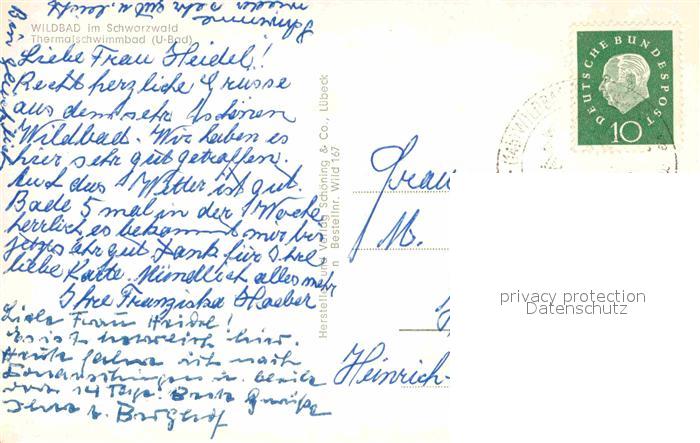 WILDBAD im Schwarzwald
Thermalschwimmbad (U-Bad)
Liebe Frau Heidel!
Recht herzliche Grüsse
aus dem sehr schönen
Wildbad. Wir haben es
hier sehr gut getroffen.
Auch das Wetter ist gut.
Bade 5 mal in der Woche
herrlich, es bekommt mir bis
jetzt sehr gut. Dank für Ihre
liebe Karte. Mündlich alles mehr
Ihre Franziska Haeber
Liebe Frau Heidel!
Es ist herrlich hier.
Heute fahre ich nach
Donaueschingen u. bleibe
14 Tage. Beste Grüße
Ihre
schwimme
wieder sehr gut u.
Herstellung und Verlag Schöning & Co., Lübeck
Bestellnr. Wild 167
DEUTSCHE BUNDESPOST
10
Frau
M.
Heinrich-
privacy protection
Datenschutz